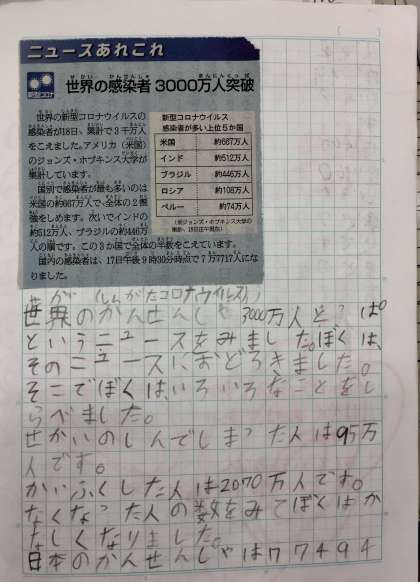 ニュースあれこれ
新型コロナ
世界の感染者 3000万人突破
世界の新型コロナウイルスの
感染者が18日、累計で3千万人
をこえました。アメリカ(米国)
のジョンズ・ホプキンス大学が
集計しています。
国別で感染者が最も多いのは
米国の約667万人で、全体の2割
強をしめます。次いでインドの
約512万人、ブラジルの約446万
人の順です。この3か国で全体の半数をこえています。
国内の感染者は、17日午後9時30分時点で7万7717人にな
りました。
新型コロナウイルス
感染者が多い上位5か国
米国 約667万人
インド 約512万人
ブラジル 約446万人
ロシア 約108万人
ペルー 約74万人
(米ジョンズ・ホプキンス大学の
集計、18日正午現在)
せかい(しんがたコロナウイルス)
世界のかんせんしゃ3000万人とっぱ
というニュースをみました。ぼくは、
そのニュースにおどろきました。
そこでぼくは、いろいろなことをし
らべました。
せかいのしんでしまった人は95万
人です。
かいふくした人は2070万人です。
なくなった人の数をみてぼくはか
なしくなりました。
日本のかんせんしゃは77494